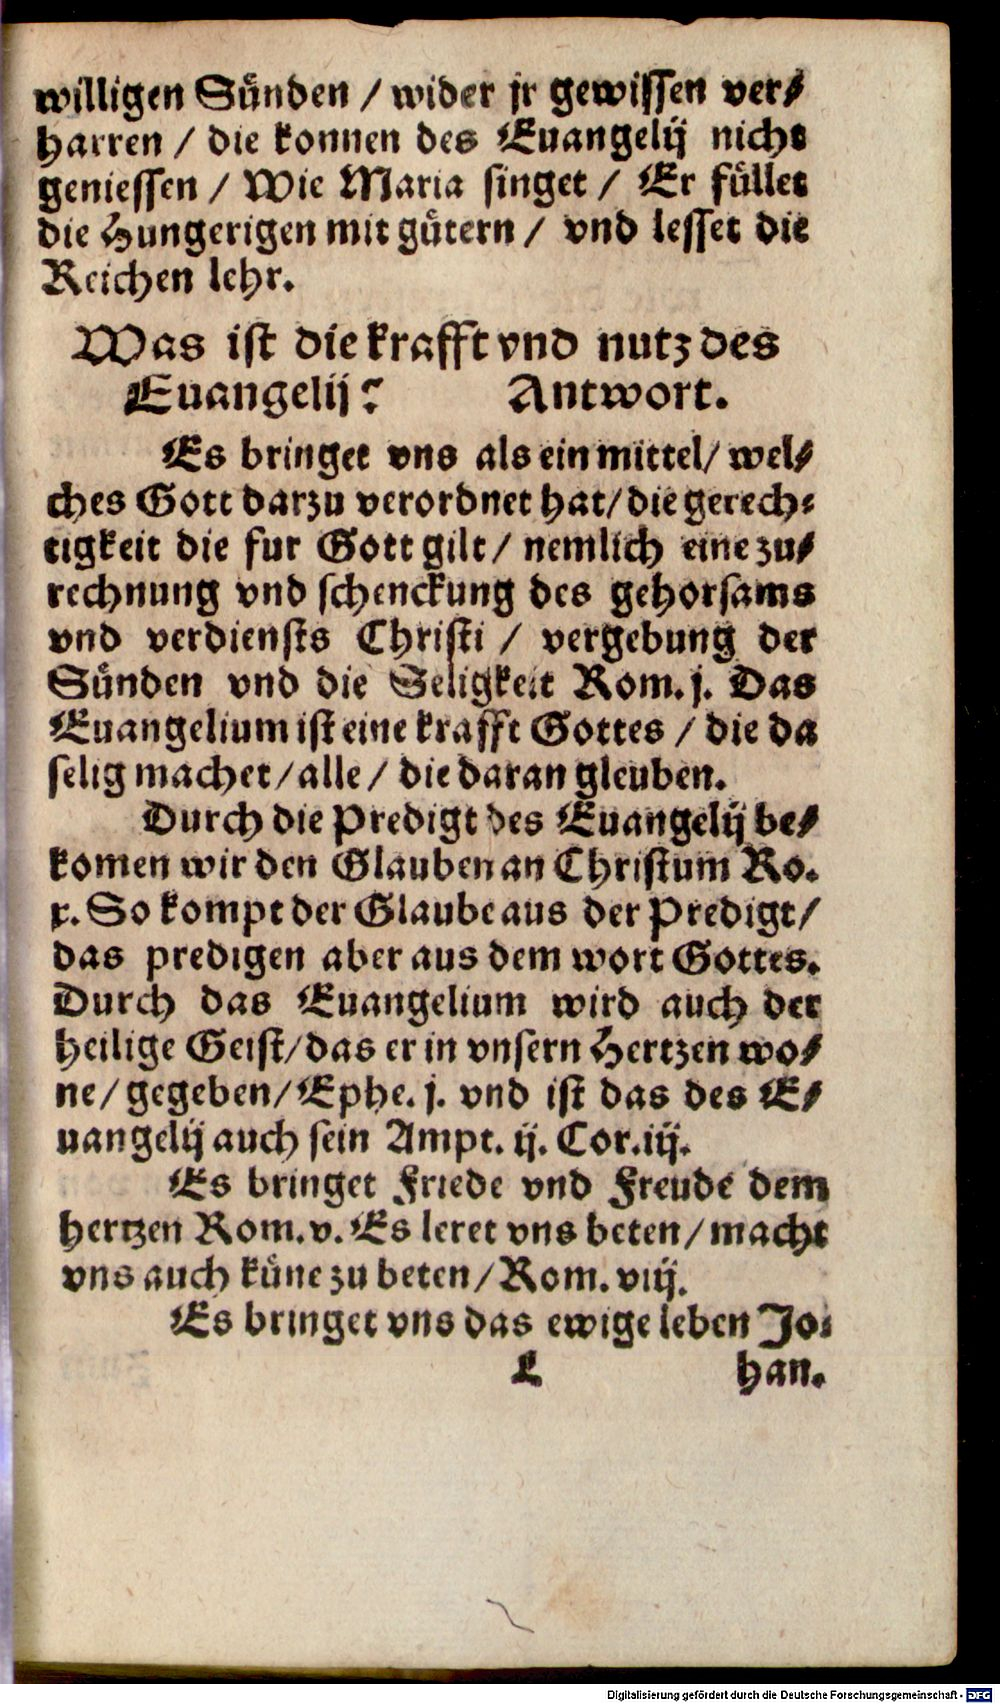 willigen Sünden / wider jr gewissen ver-
harren / die konnen des Euangelij nicht
geniessen / Wie Maria singet / Er füllet
die Hungerigen mit gütern / vnd lesset die
Reichen lehr.
Was ist die krafft vnd nutz des
Euangelij? Antwort.
Es bringet vns als ein mittel / wel-
ches Gott darzu verordnet hat / die gerech-
tigkeit die fur Gott gilt / nemlich eine zu-
rechnung vnd schenckung des gehorsams
vnd verdiensts Christi / vergebung der
Sünden vnd die Seligkeit Rom. j. Das
Euangelium ist eine krafft Gottes / die da
selig machet / alle / die daran gleuben.
Durch die Predigt des Euangelij be-
komen wir den Glauben an Christum Ro.
x. So kompt der Glaube aus der Predigt /
das predigen aber aus dem wort Gottes.
Durch das Euangelium wird auch der
heilige Geist / das er in vnsern Hertzen wo-
ne / gegeben / Ephe. j. vnd ist das des E-
uangelij auch sein Ampt. ij. Cor. iij.
Es bringet Friede vnd Freude dem
hertzen Rom. v. Es leret vns beten / macht
vns auch küne zu beten / Rom. viij.
Es bringet vns das ewige leben Jo-
L han.
Digitalisierung gefördert durch die Deutsche Forschungsgemeinschaft - DFG